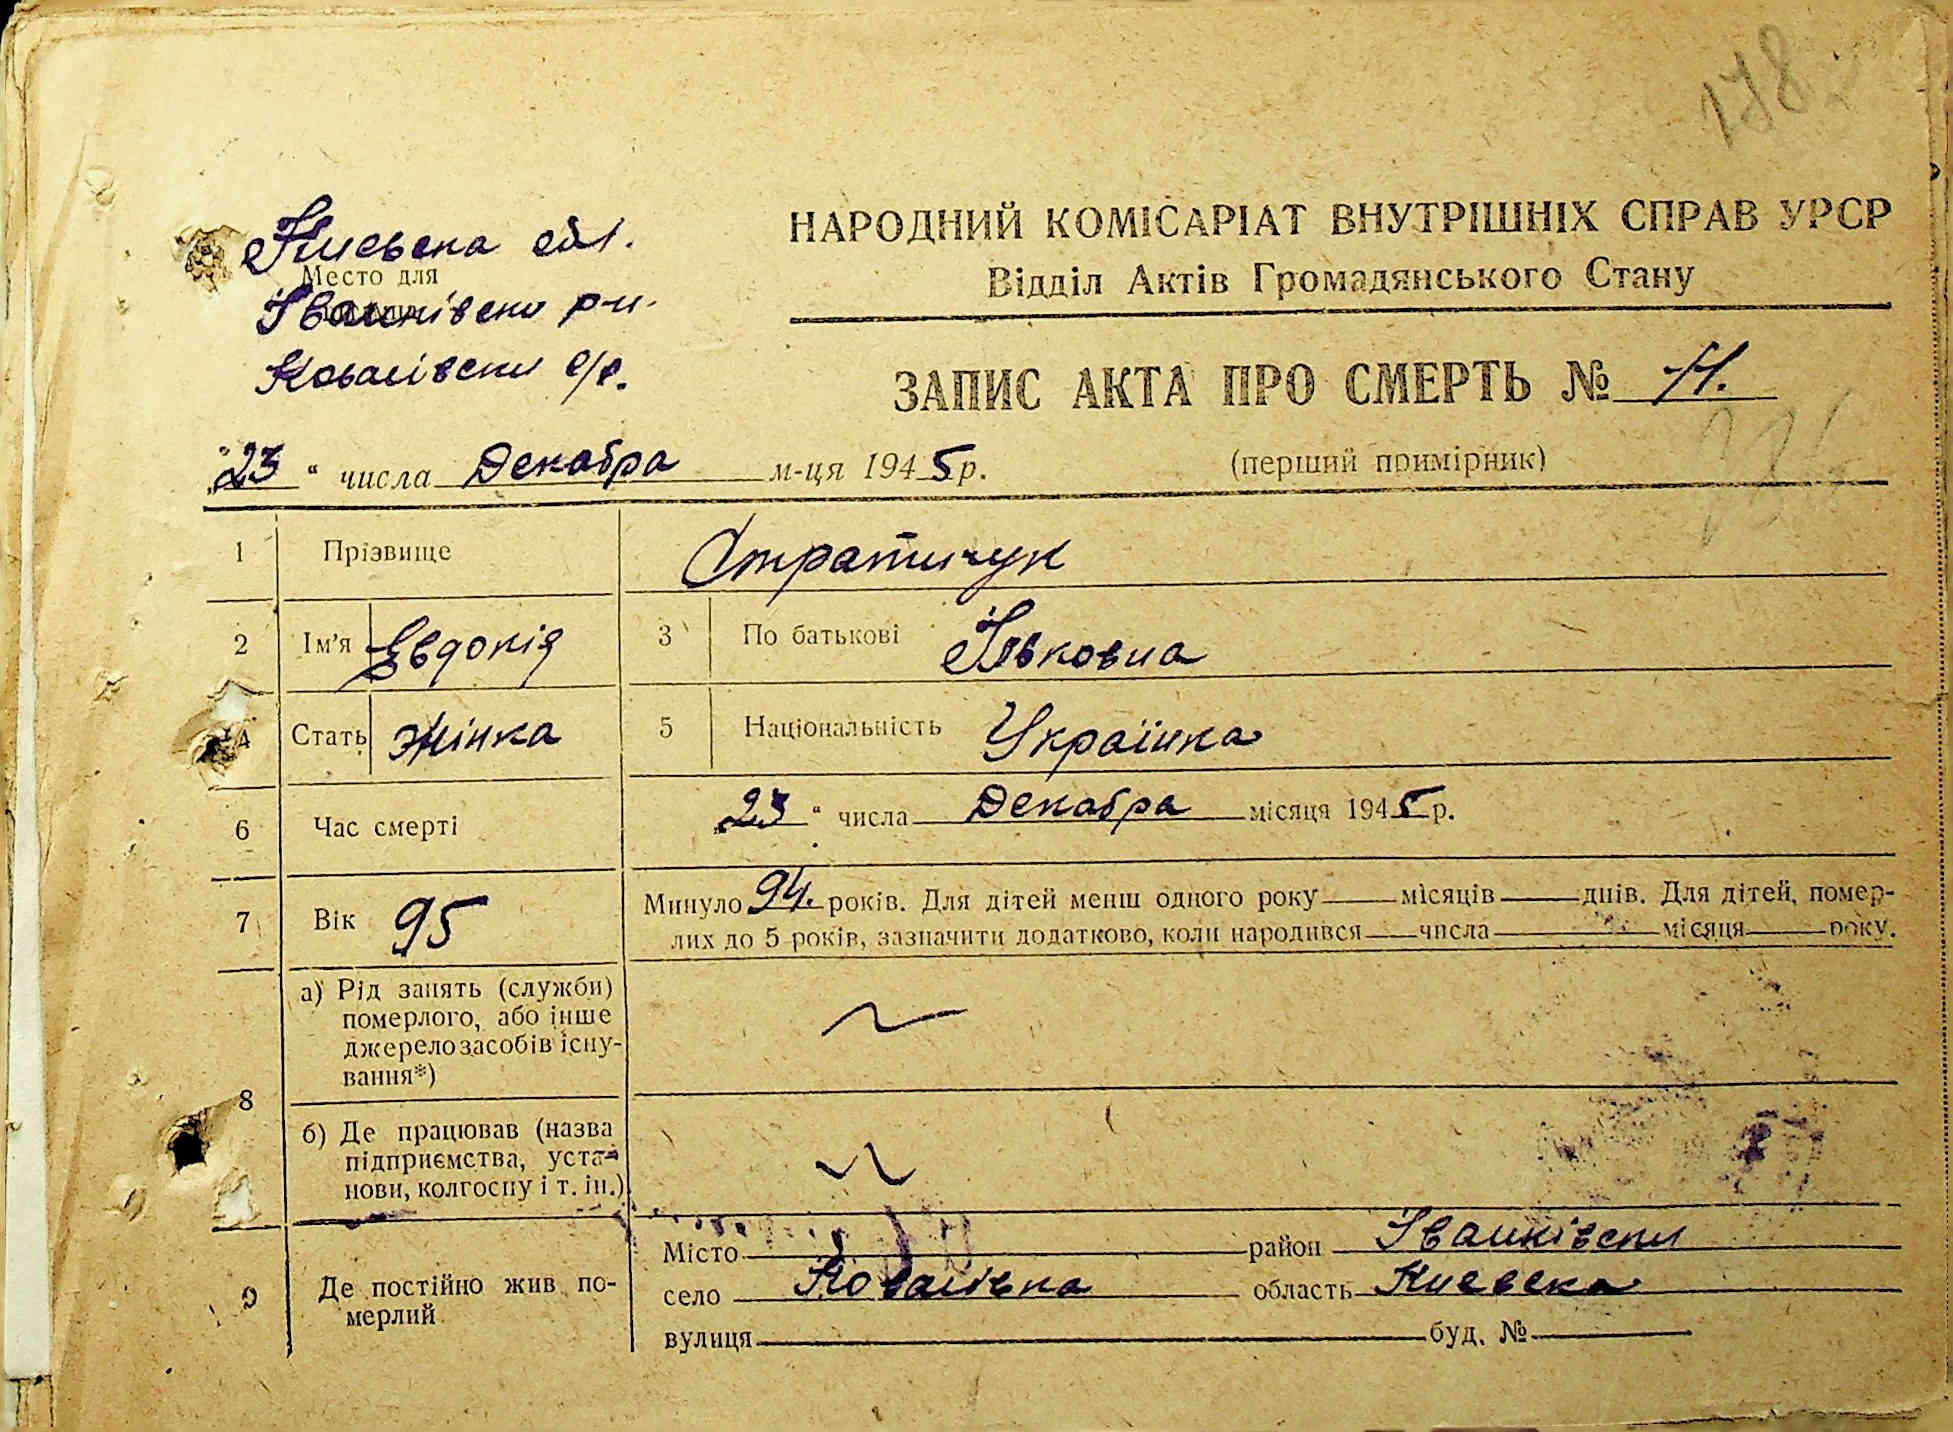 178
Киевска обл.
Место для
Іванківски р-н.
Ковалівски с/р.
НАРОДНИЙ КОМІСАРІАТ ВНУТРІШНІХ СПРАВ УРСР
Відділ Актів Громадянського Стану
ЗАПИС АКТА ПРО СМЕРТЬ № 11.
„23“ числа Декабра м-ця 1945 р.
(перший примірник)
1 Прізвище Стратичук
2 Ім'я Евдокія 3 По батькові Ільковна
4 Стать жінка 5 Національність Українка
6 Час смерті „23“ числа Декабра місяця 1945 р.
7 Вік 95 Минуло 94. років. Для дітей менш одного року місяців днів. Для дітей, помер-
лих до 5 років, зазначити додатково, коли народився числа місяця року.
8 а) Рід занять (служби)
померлого, або інше
джерело засобів існу-
вання*)
б) Де працював (назва
підприємства, уста-
нови, колгоспу і т. ін.)
9 Де постійно жив по-
мерлий
Місто район Іванківски
село Ковалівка область Киевска
вулиця буд. №